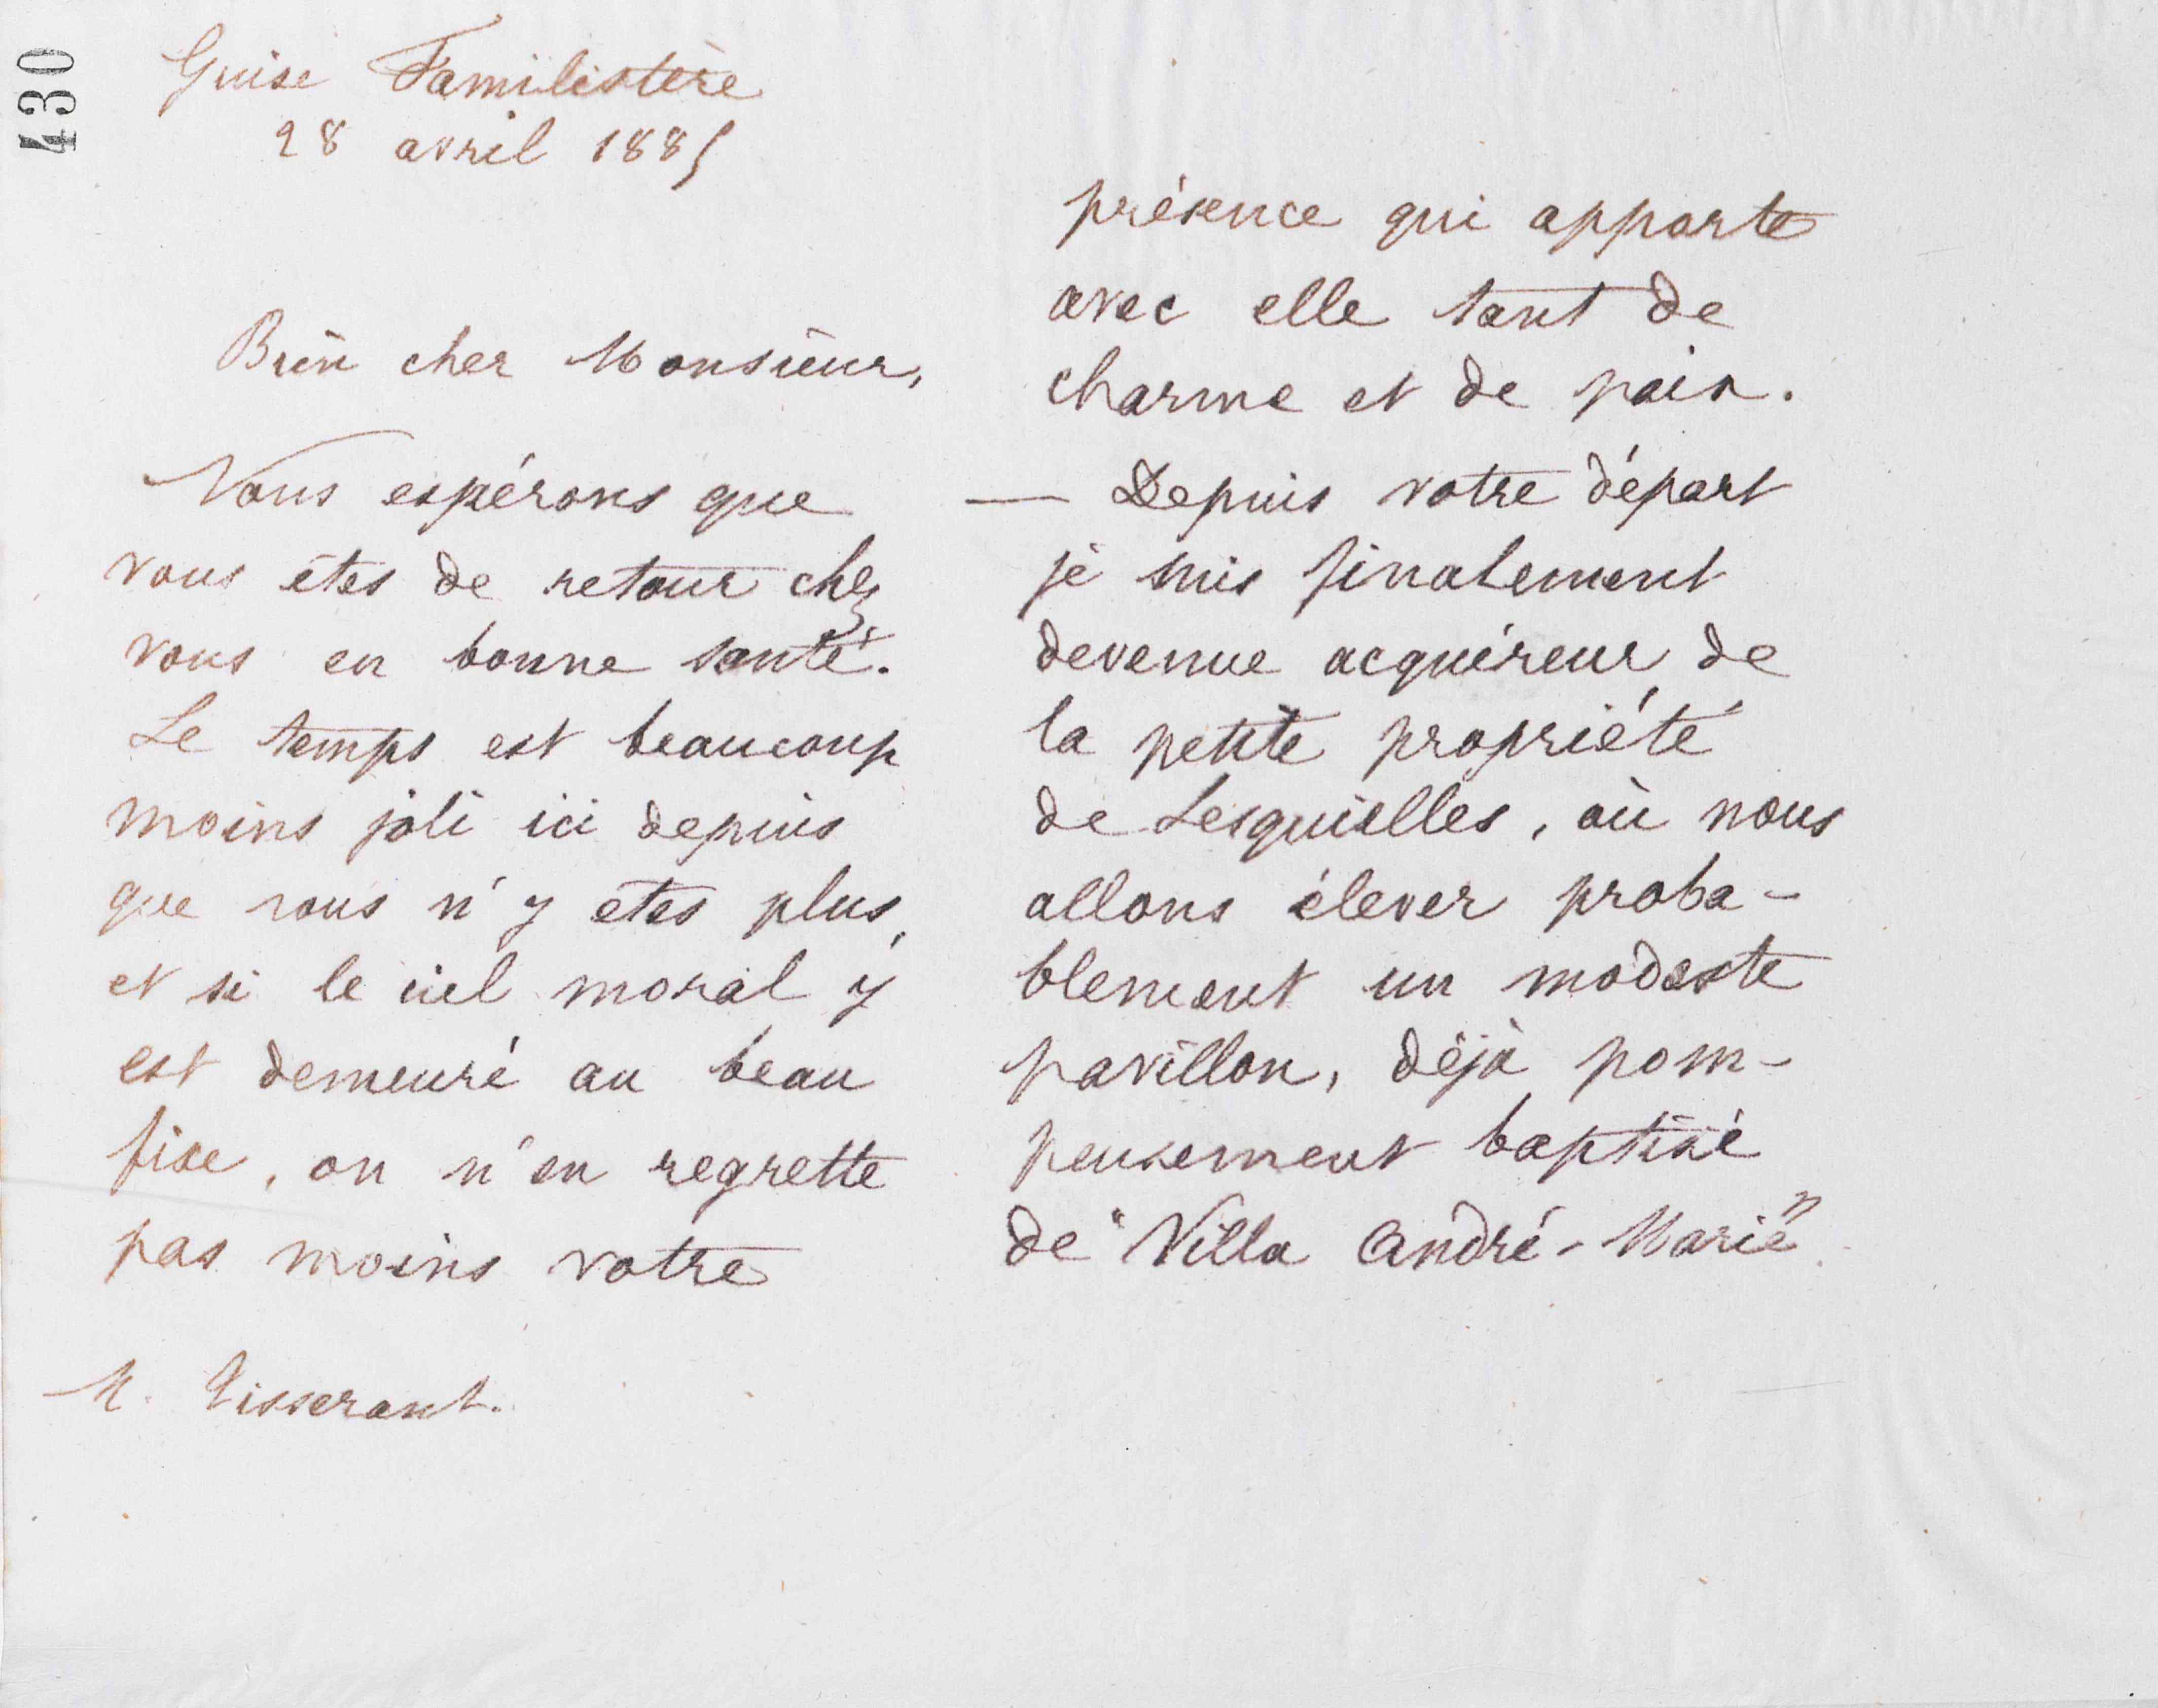 430
Guise Familistère
28 avril 1885
Bien cher Monsieur,
Nous espérons que
vous êtes de retour chez
vous en bonne santé.
Le temps est beaucoup
moins joli ici depuis
que vous n'y êtes plus,
et si le ciel moral y
est demeuré au beau
fixe, on n'en regrette
pas moins votre
M. Tisserant.
présence qui apporte
avec elle tant de
charme et de paix.
— Depuis votre départ
je suis finalement
devenue acquéreur de
la petite propriété
de Lesquielles, où nous
allons élever proba-
blement un modeste
pavillon, déjà pom-
peusement baptisé
de "Villa André-Marie".